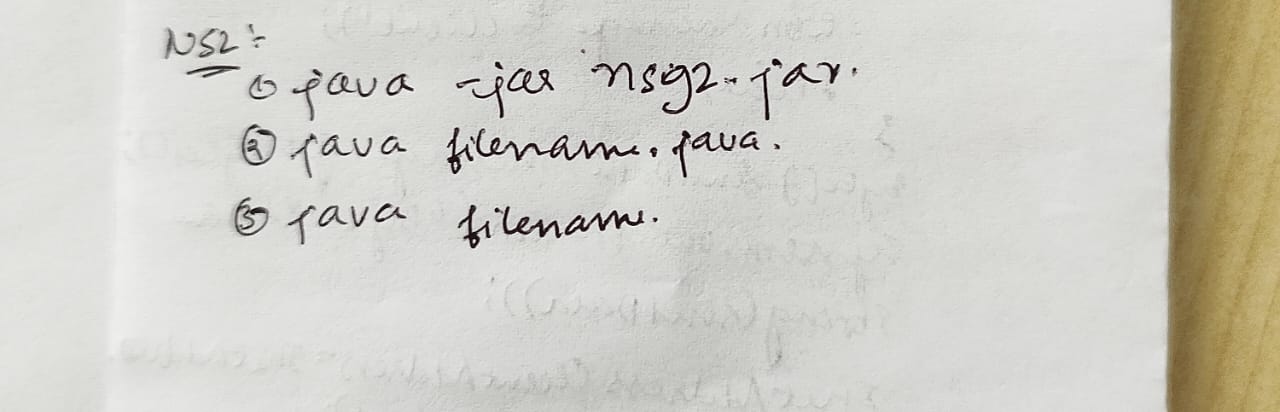 NS2:-
① java -jar nsg2.jar.
② java filename.java.
③ java filename.